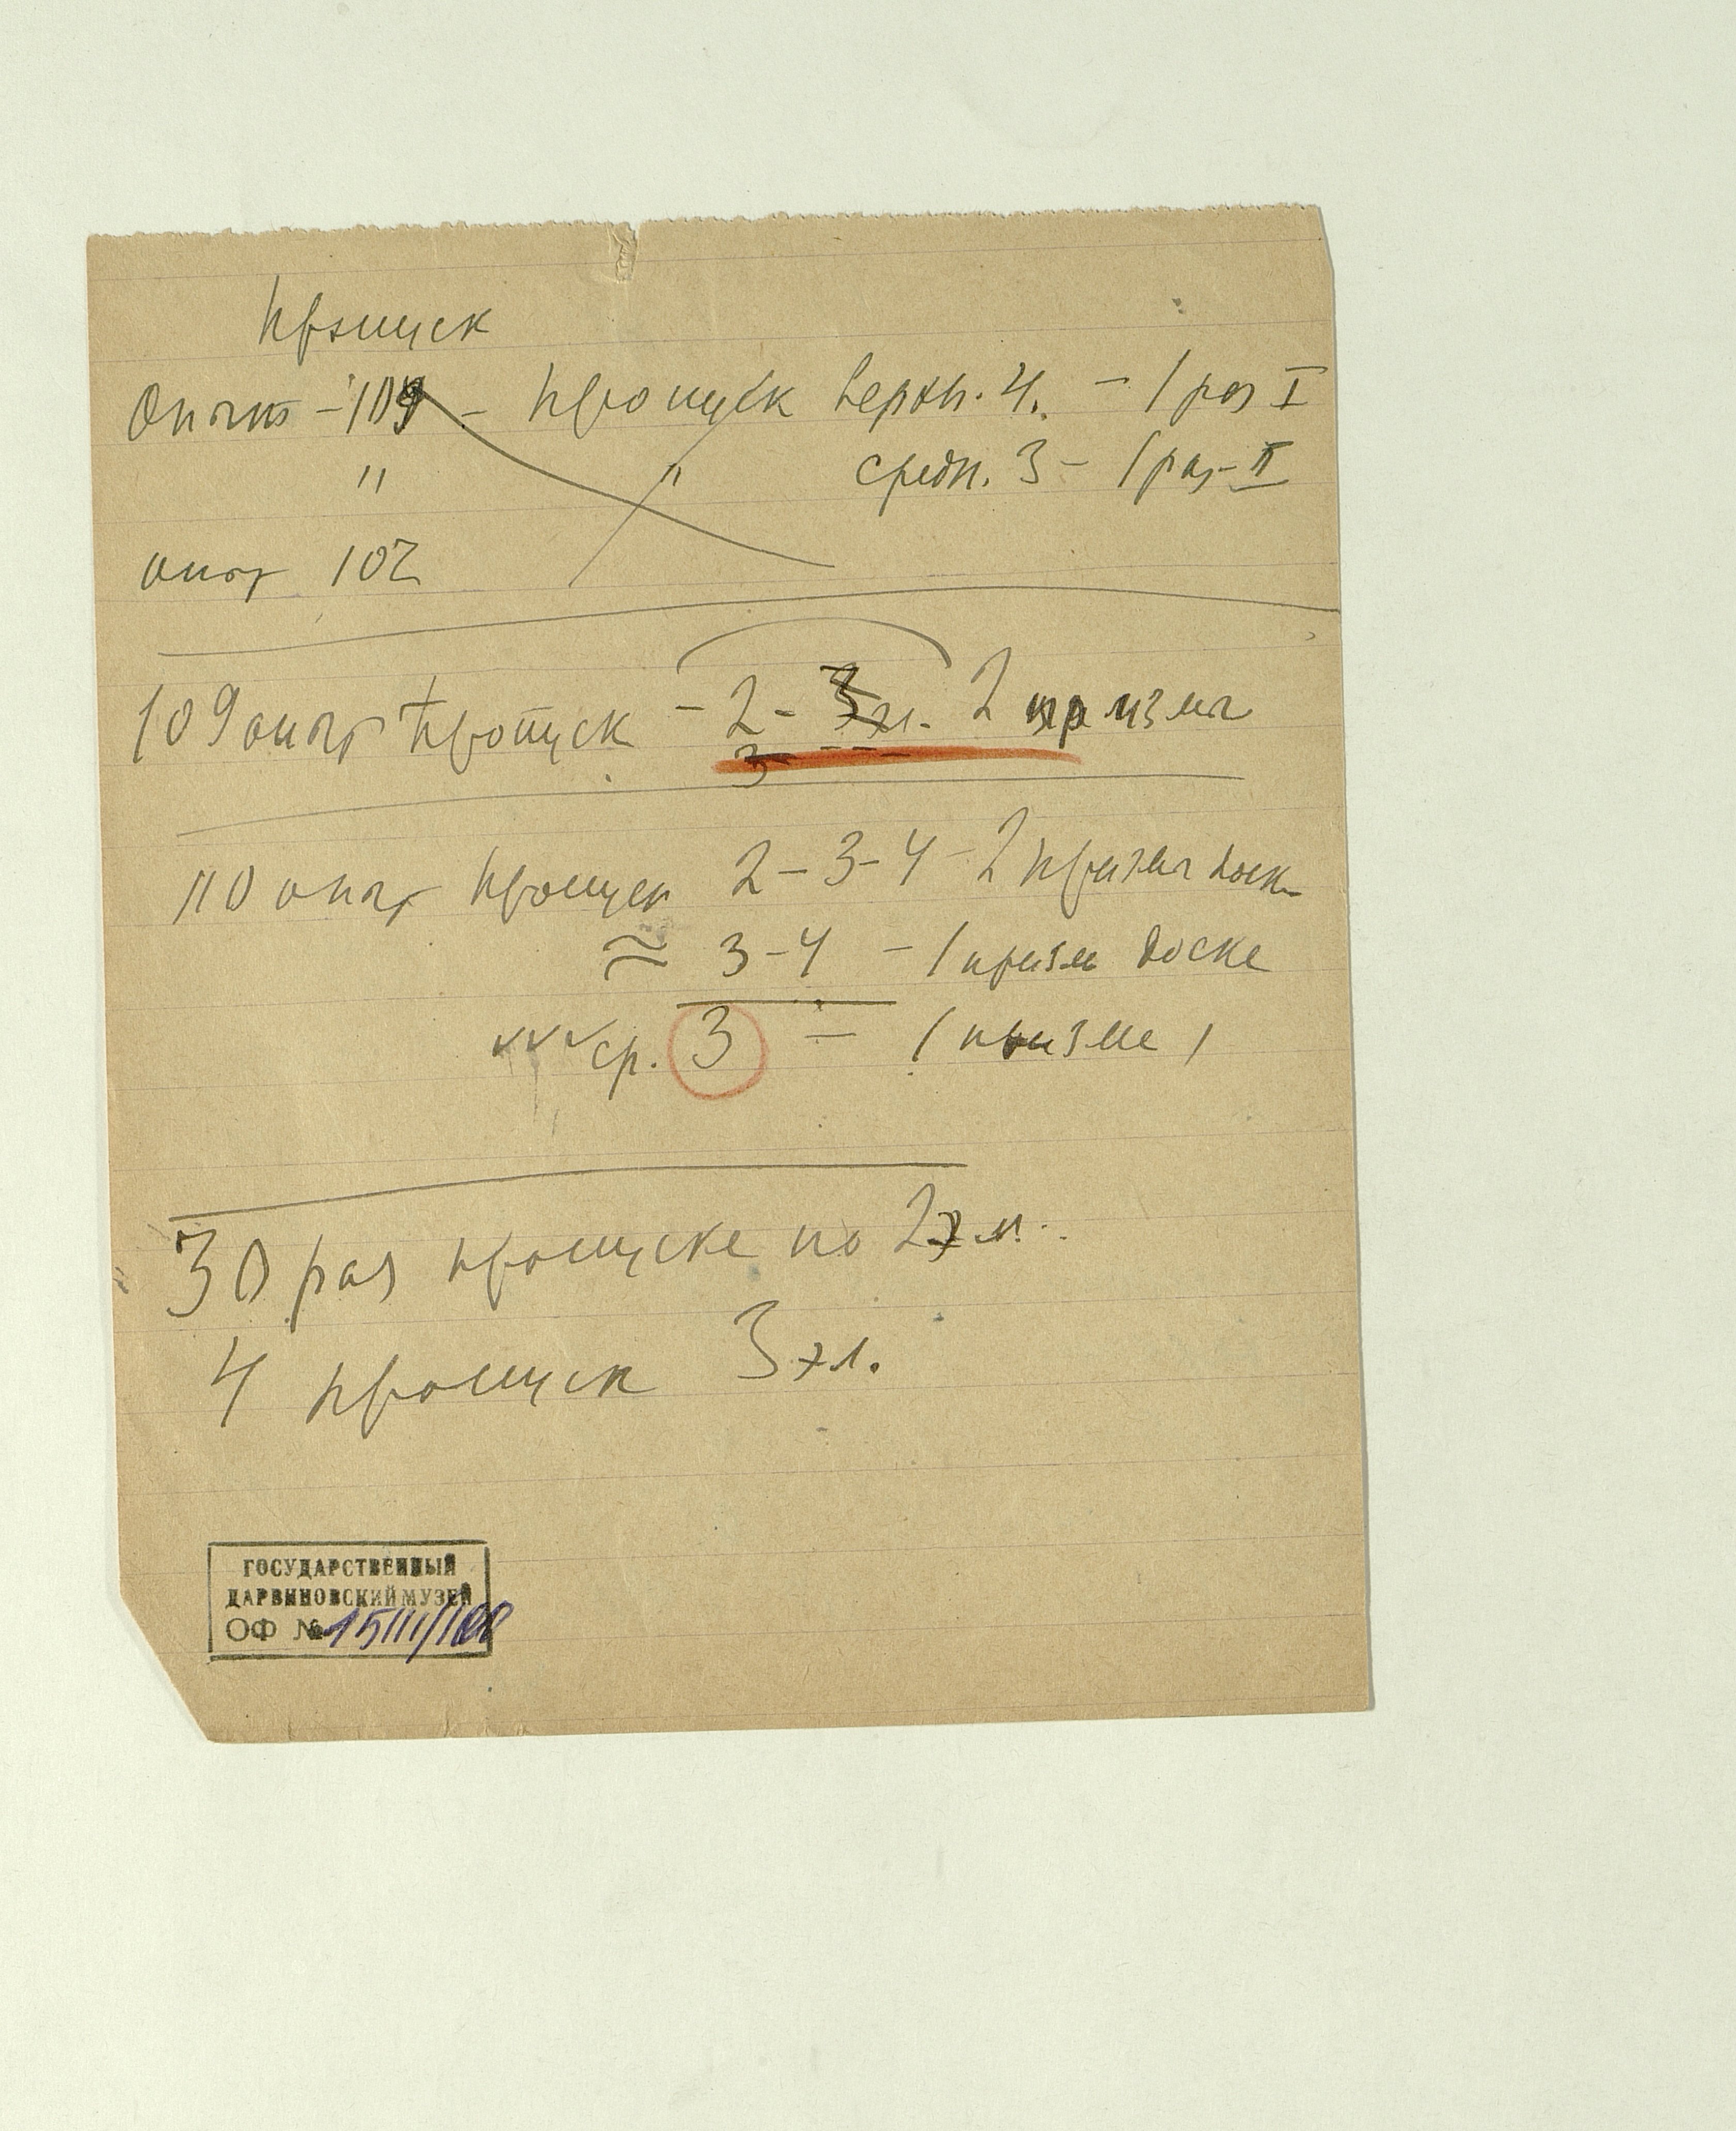 Пропуск
Опыт - 109 - пропуск верхн. 4. - 1 раз I
" " средн. 3 - 1 раз - II
опыт 107
109 опыт пропуск - 2 - 3 эл. 2 призмы
3
110 опыт пропуск 2 - 3 - 4 - 2 призмы доск
≈ 3 - 4 - 1 призм доске
ср. 3 - 1 призме 1
30 раз пропуске по 2 эл.
4 пропуск 3 эл.
ГОСУДАРСТВЕННЫЙ
ДАРВИНОВСКИЙ МУЗЕЙ
ОФ №